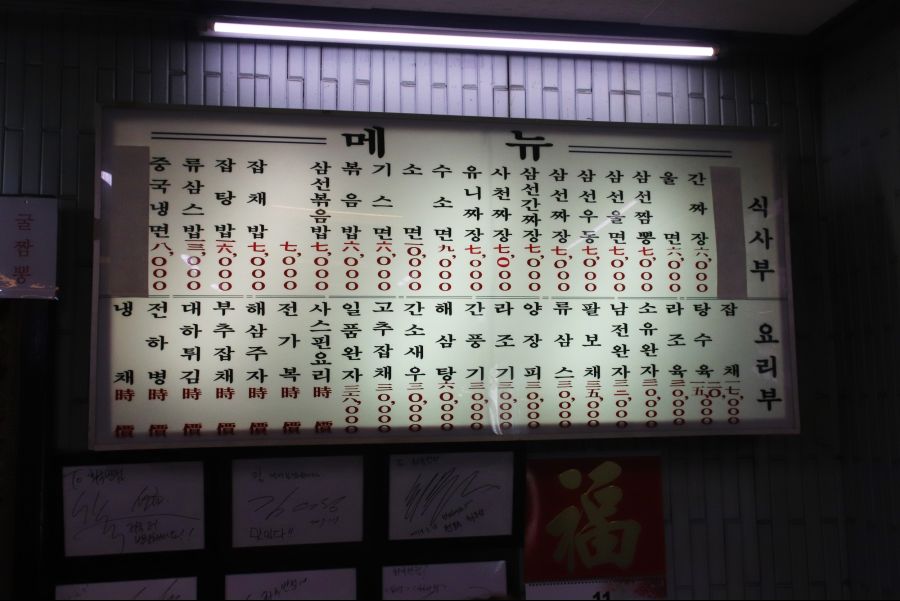 메뉴
식사부
간짜장 六,000
울면 六,000
삼선짬뽕 七,000
삼선울면 七,000
삼선우동 七,000
삼선짜장 七,000
삼선간짜장 七,000
사천짜장 七,000
유니짜장 七,000
수소면 九,000
소면 一0,000
기스면 六,000
볶음밥 六,000
삼선볶음밥 七,000
七,000
잡채밥 七,000
잡탕밥
류삼스밥
중국냉면 八,000
요리부
잡채 一七,000
탕수육 一五,000 二0,000
라조육 三0,000
소유완자 三0,000
남전완자 三0,000
팔보채 三五,000
류삼스 三0,000
양장피 三0,000
라조기 三0,000
간풍기 三0,000
해삼탕 六0,000
간소새우 三0,000
고추잡채 三0,000
일품완자
사스핀요리 時價
전가복 時價
해삼주자 時價
부추잡채 時價
대하튀김 時價
전하병 時價
냉채 時價
굴짬뽕
福
11